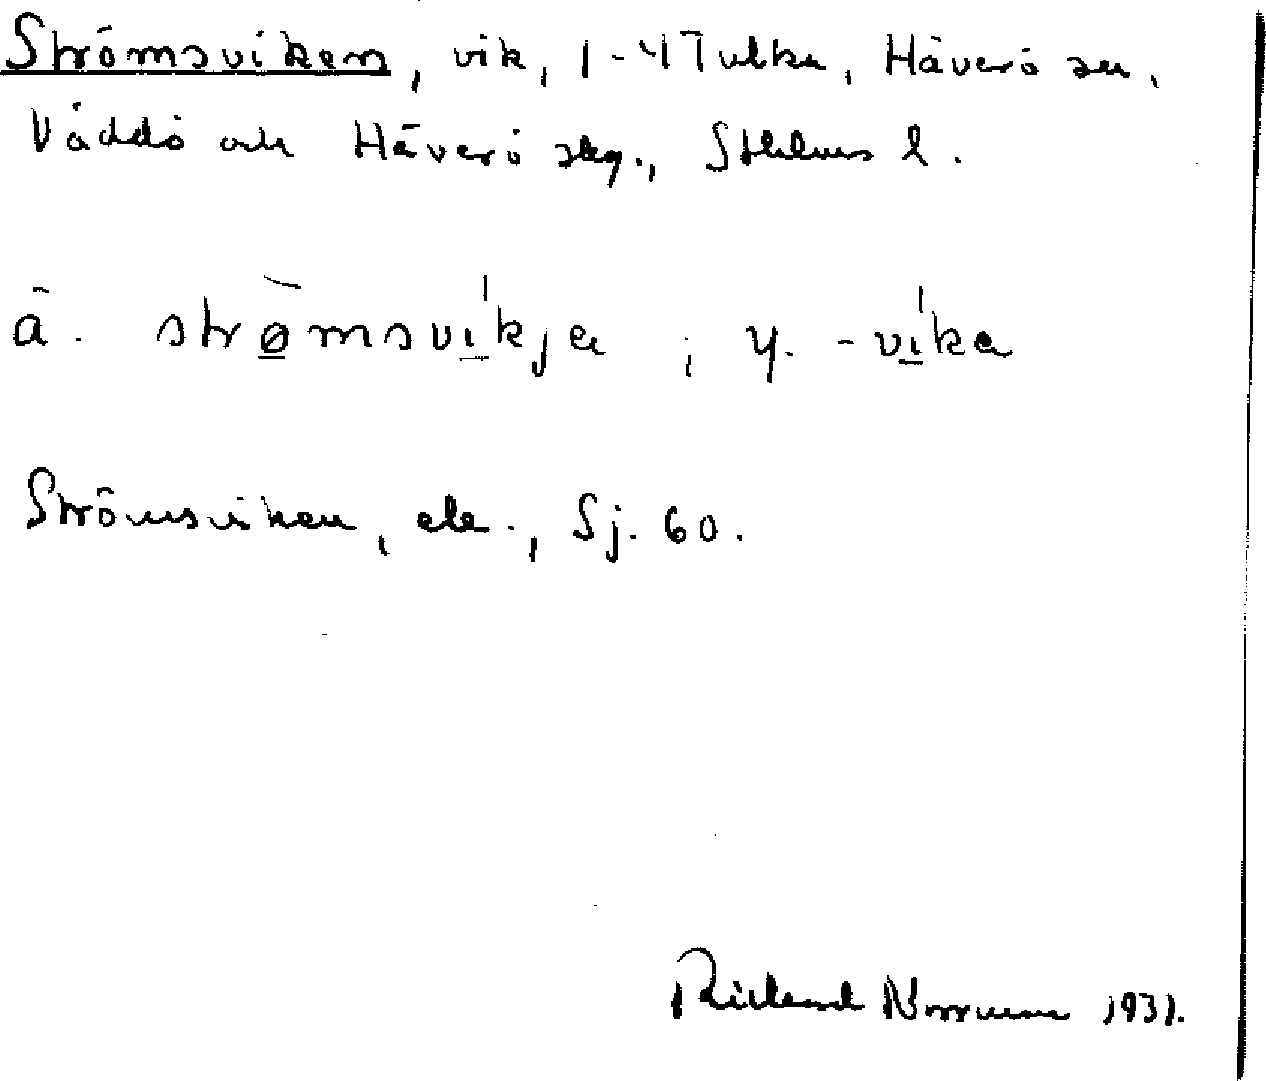 Strömsviken, vik, 1-4 Tulka, Häverö sn,
Väddö och Häverö skg., Sthlms l.
ä. strømsvikja ; y. -vika
Strömsviken, ek., Sj. 60.
Rickard Norrman 1931.